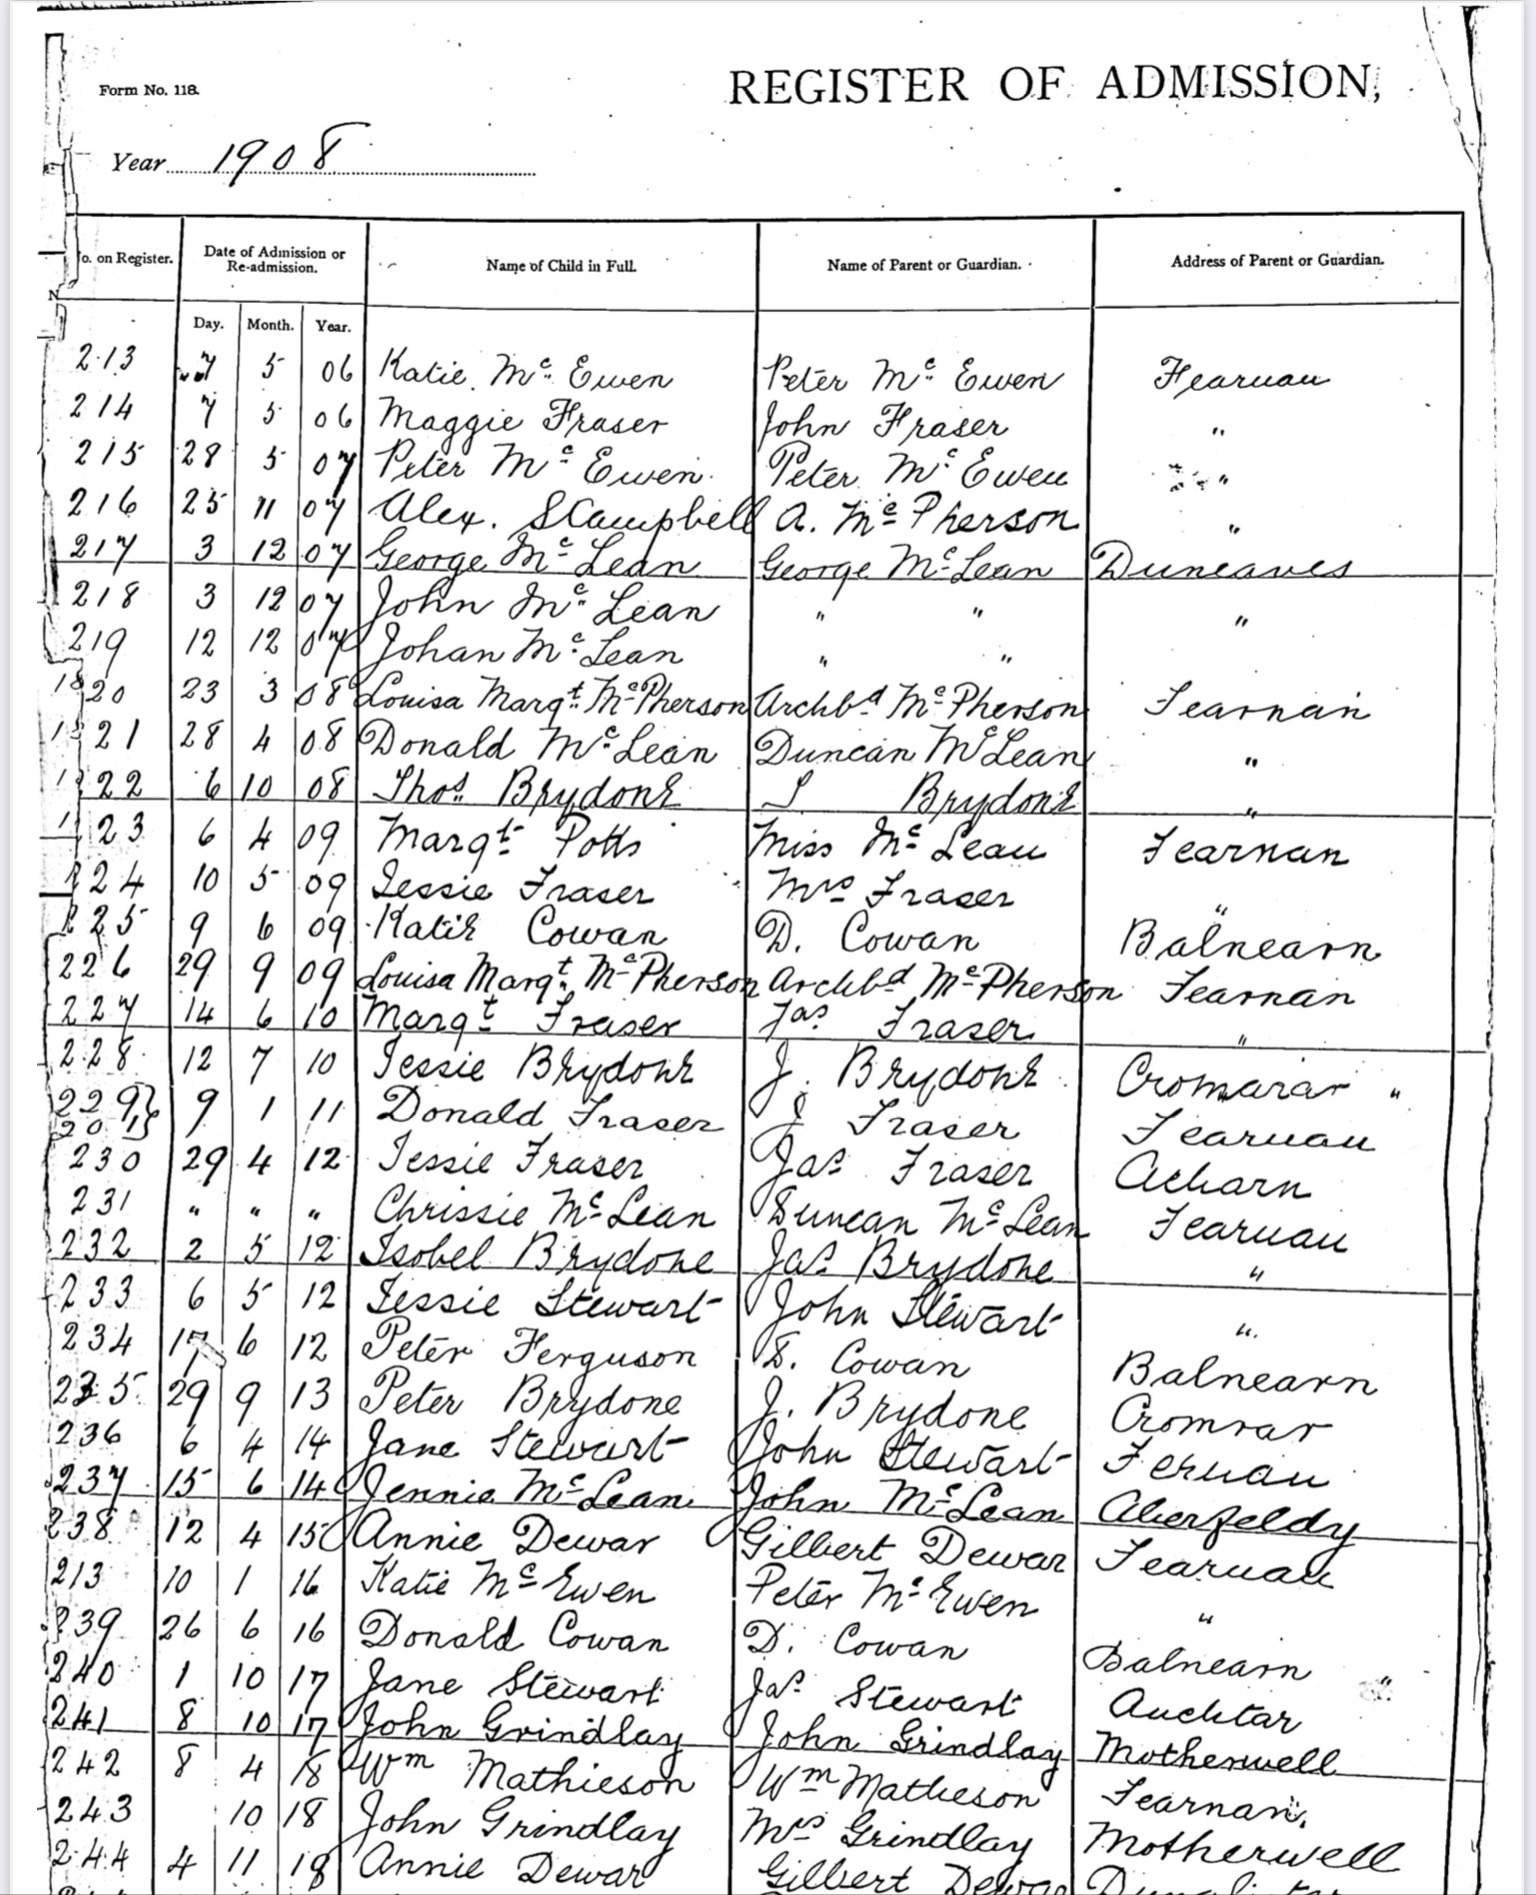 Form No. 118.
REGISTER OF ADMISSION,
Year 1908
o. on Register. Date of Admission or Re-admission. Name of Child in Full. Name of Parent or Guardian. Address of Parent or Guardian.
N
Day. Month. Year.
213 7 5 06 Katie Mc Ewen Peter Mc Ewen Fearnan
214 7 5 06 Maggie Fraser John Fraser "
215 28 5 07 Peter Mc Ewen Peter Mc Ewen "
216 25 11 07 Alex. SCampbell A. McPherson "
217 3 12 07 George McLean George McLean Duneaves
218 3 12 07 John McLean " " "
219 12 12 07 Johan McLean " "
20 23 3 08 Louisa Margt. McPherson Archbd McPherson Fearnan
21 28 4 08 Donald McLean Duncan McLean "
22 6 10 08 Thos. Brydone Brydone "
23 6 4 09 Margt Potts Miss McLean Fearnan
24 10 5 09 Jessie Fraser Mrs Fraser "
25 9 6 09 Katie Cowan D. Cowan Balnearn
226 29 9 09 Louisa Margt. McPherson Archbd McPherson Fearnan
227 14 6 10 Margt Fraser Jas Fraser "
228 12 7 10 Jessie Brydone J. Brydone Cromarar "
229 9 1 11 Donald Fraser J Fraser Fearnan
230 29 4 12 Jessie Fraser Jas Fraser Acharn
231 " " " Chrissie McLean Duncan McLean Fearnan
232 2 5 12 Isobel Brydone Jas Brydone "
233 6 5 12 Jessie Stewart John Stewart "
234 17 6 12 Peter Ferguson D. Cowan Balnearn
235 29 9 13 Peter Brydone J. Brydone Cromrar
236 6 4 14 Jane Stewart John Stewart Fernan
237 15 6 14 Jennie McLean John McLean Aberfeldy
238 12 4 15 Annie Dewar Gilbert Dewar Fearnan
213 10 1 16 Katie McEwen Peter McEwen "
239 26 6 16 Donald Cowan D. Cowan Balnearn "
240 1 10 17 Jane Stewart Jas Stewart Auchtar
241 8 10 17 John Grindlay John Grindlay Motherwell
242 8 4 18 Wm Mathieson Wm Matheson Fearnan,
243 10 18 John Grindlay Mrs Grindlay Motherwell
244 4 11 18 Annie Dewar Gilbert Dewar